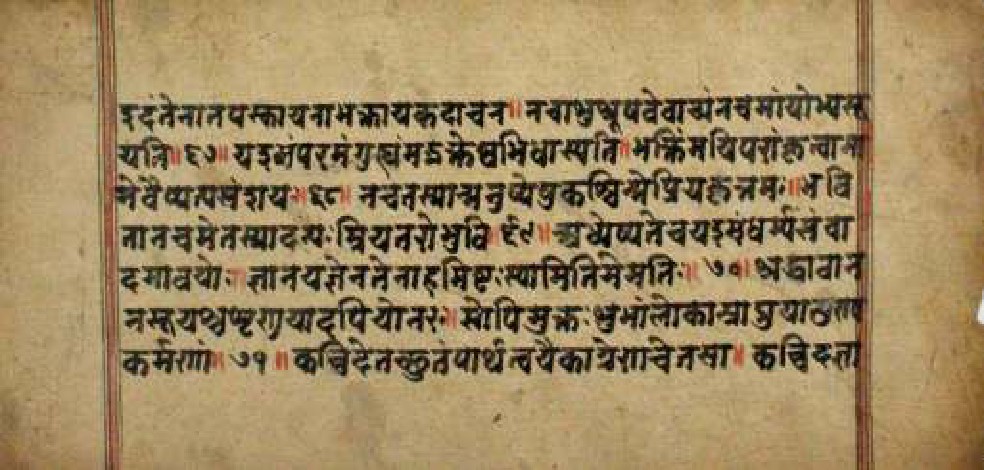 इदंतेनातपस्कायनाभक्तायकदाचन॥नचाशुश्रूषवेवाच्यंनचमांयोभ्यसू
यति॥६७॥यइमंपरमंगुह्यंमद्भक्तेष्वभिधास्यति॥भक्तिंमयिपरांकृत्वामा
मेवैष्यत्यसंशयः॥६८॥नचतस्मान्मनुष्येषुकश्चिन्मेप्रियकृत्तमः॥भवि
तानचमेतस्मादन्यःप्रियतरोभुवि॥६९॥अध्येष्यतेचयइमंधर्म्यंसंवा
दमावयोः॥ज्ञानयज्ञेनतेनाहमिष्टःस्यामितिमेमतिः॥७०॥श्रद्धावान
नसूयश्चशृणुयादपियोनरः॥सोपिमुक्तःशुभांलोकान्प्राप्नुयात्पुण्य
कर्मणां॥७१॥कच्चिदेतच्छ्रुतंपार्थत्वयैकाग्रेणचेतसा॥कच्चिदज्ञा